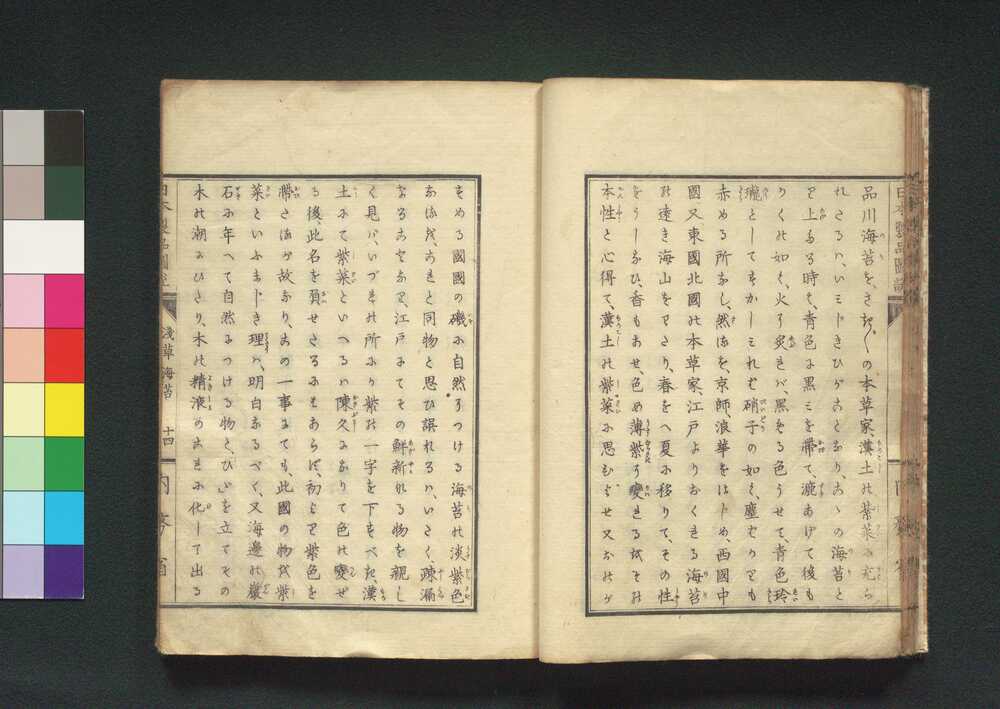 品川海苔を、きぢかくの本草家、漢土の紫菜に充ら
れたるハ、いミじきひがことなり、かゝの海苔と
を上たる時も、青色に黒ミを帶て、漉あげて後も
りくの如く、火に炙きバ、黒たる色うせて、青色玲
瓏としてすかしミれバ硝子の如く、塵せりとも
赤める所なし、然るを、京師、浪華をはじめ、西國中
國又、東國北國の本草家、江戸よりおくれる海苔
の遠き海山をわたり、春をへ夏に移りて、その性
をうしなひ、香もあせ、色も薄紫に變れるをその
本性と心得て、漢土の紫菜に思ひよせ又おのが
すめる國國の磯に自然につける海苔の淡紫色
なるを、これと同物と思ひ誤れるハ、いたく疎漏
なることなり、江戸にてその鮮新れる物を親し
く見バ、いづれの所にか紫の一字を下すべき、漢
土にて紫菜といへるハ陳久になりて色の變せ
る後、此名を負せたるにもあらず、初より紫色を
帶たるが故なり、この一事にても、此國の物を紫
菜といふまじき理ハ、明白なるべく、又海邊の巖
石に年へて自然につける物と、ひゞを立てその
木の潮にひたり、木の精液のこれに化して出る
淺草海苔
十四